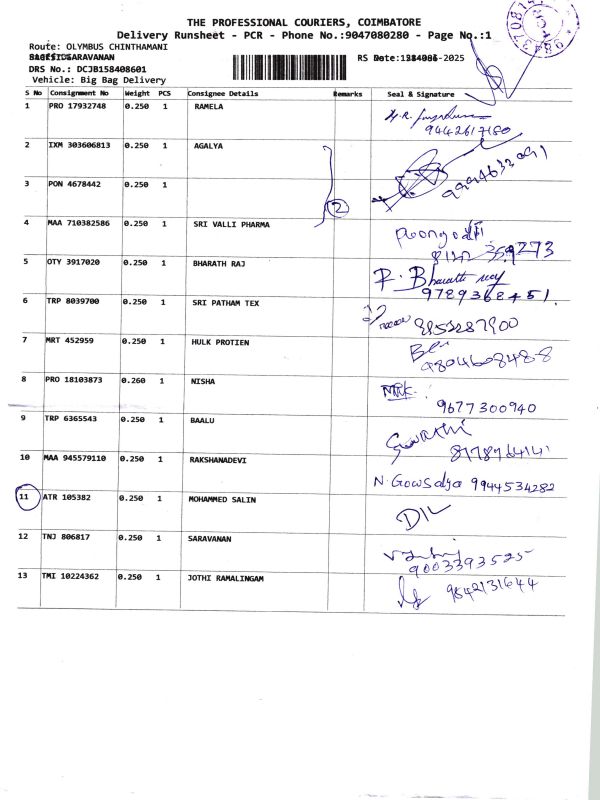 THE PROFESSIONAL COURIERS, COIMBATORE
Delivery Runsheet - PCR - Phone No.:9047080280 - Page No.:1
Route: OLYMBUS CHINTHAMANI
SARAVANAN
RS No -2025
DRS No.: DCJB158408601
Vehicle: Big Bag Delivery
S No Consignment No Weight PCS Consignee Details Remarks Seal & Signature
1 PRO 17932748 0.250 1 RAMELA
9442617180
2 IXM 303606813 0.250 1 AGALYA
9994632091
3 PON 4678442 0.250 1
2
4 MAA 710382586 0.250 1 SRI VALLI PHARMA
5 OTY 3917020 0.250 1 BHARATH RAJ
P. Bharath
9789368451.
6 TRP 8039700 0.250 1 SRI PATHAM TEX
7 MRT 452959 0.250 1 HULK PROTIEN
9804608488
8 PRO 18103873 0.260 1 NISHA
9677300940
9 TRP 6365543 0.250 1 BAALU
10 MAA 945579110 0.250 1 RAKSHANADEVI
N. Gowsalya 9944534282
11 ATR 105382 0.250 1 MOHAMMED SALIN
DIL
12 TNJ 806817 0.250 1 SARAVANAN
9003393525
13 TMI 10224362 0.250 1 JOTHI RAMALINGAM
9842131644